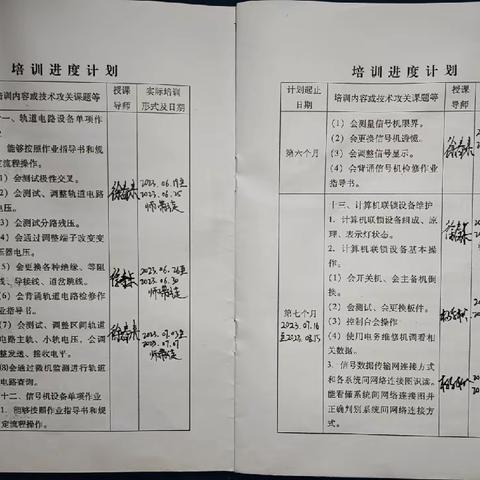 培训进度计划
培训内容或技术攻关课题等
授课
导师
实际培训
形式及日期
十一、轨道电路设备单项作
能够按照作业指导书和规
定流程操作。
）会测试极性交叉。
）会测试、调整轨道电路
电压。
3）会测试分路残压。
4）会通过调整端子改变变
压器电压。
5）会更换各种绝缘、等阻
线、导接线、道岔跳线。
6）会背通轨道电路检修作
业指导书。
7）会测试、调整区间轨道
电路主轨、小轨电压，会调
整发送、接收电平。
⑻会通过微机监测进行轨道
电路查询。
十二、信号机设备单项作业
1．能够按照作业指导书和规
定流程操作。
2023.06.19至
2023.06.25
师带徒
2023.06.26至
2023.06.30
师带徒
2023.07.03至
2023.07.07
师带徒
培训进度计划
计划起止
日期
培训内容或技术攻关课题等
授课
导师
第六个月
（1）会测量信号机限界。
（2）会更换信号机透镜。
（3）会调整信号显示。
（4）会背诵信号机检修作业
指导书。
第七个月
2023.07.16
至2023.08.15
十三、计算机联锁设备维护
1．计算机联锁设备组成、原
理、表示灯状态。
2．计算机联锁设备基本操
作。
（1）会开关机、会主备机倒
换。
（2）会测试、会更换板件。
（3）控制台会操作
（4）使用电务维修机调看相
关数据。
3．信号数据传输网连接方式
和各系统间网络连接图识读。
能看懂系统间网络连接图并
正确判别系统间网络连接方
式。